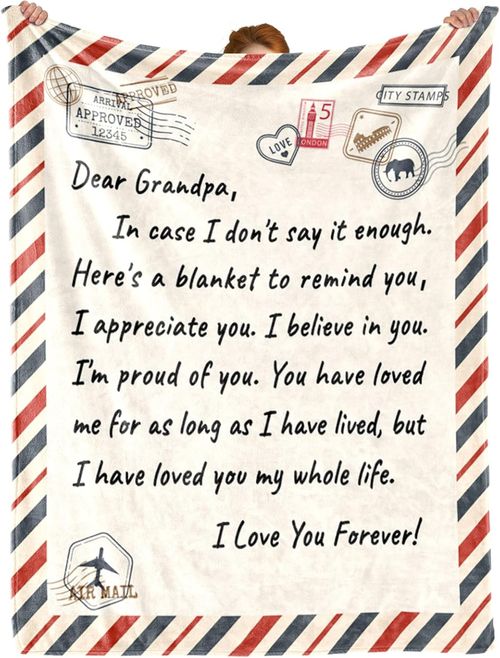 APPROVED
ARRIVAL
APPROVED
12345
LOVE
5
LONDON
CITY STAMPS
Dear Grandpa,
In case I don't say it enough.
Here's a blanket to remind you,
I appreciate you. I believe in you.
I'm proud of you. You have loved
me for as long as I have lived, but
I have loved you my whole life.
I Love You Forever!
AIR MAIL